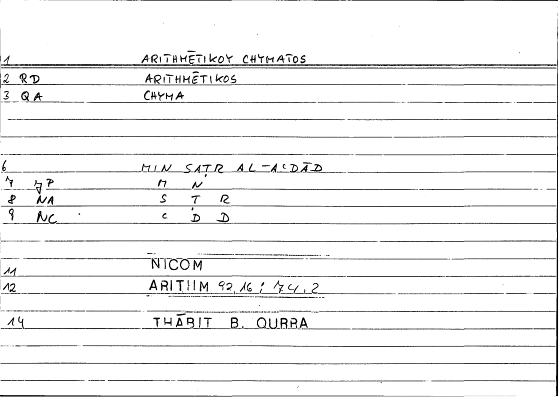 1 ARITHMĒTIKOY CHYMATOS
2 RD ARITHMĒTIKOS
3 QA CHYMA
6 MIN SATR AL-ACDĀD
7 JP M N
8 NA S T R
9 NC C D D
11 NICOM
12 ARITHM 92,16 : 74,2
14 THĀBIT B. QURRA